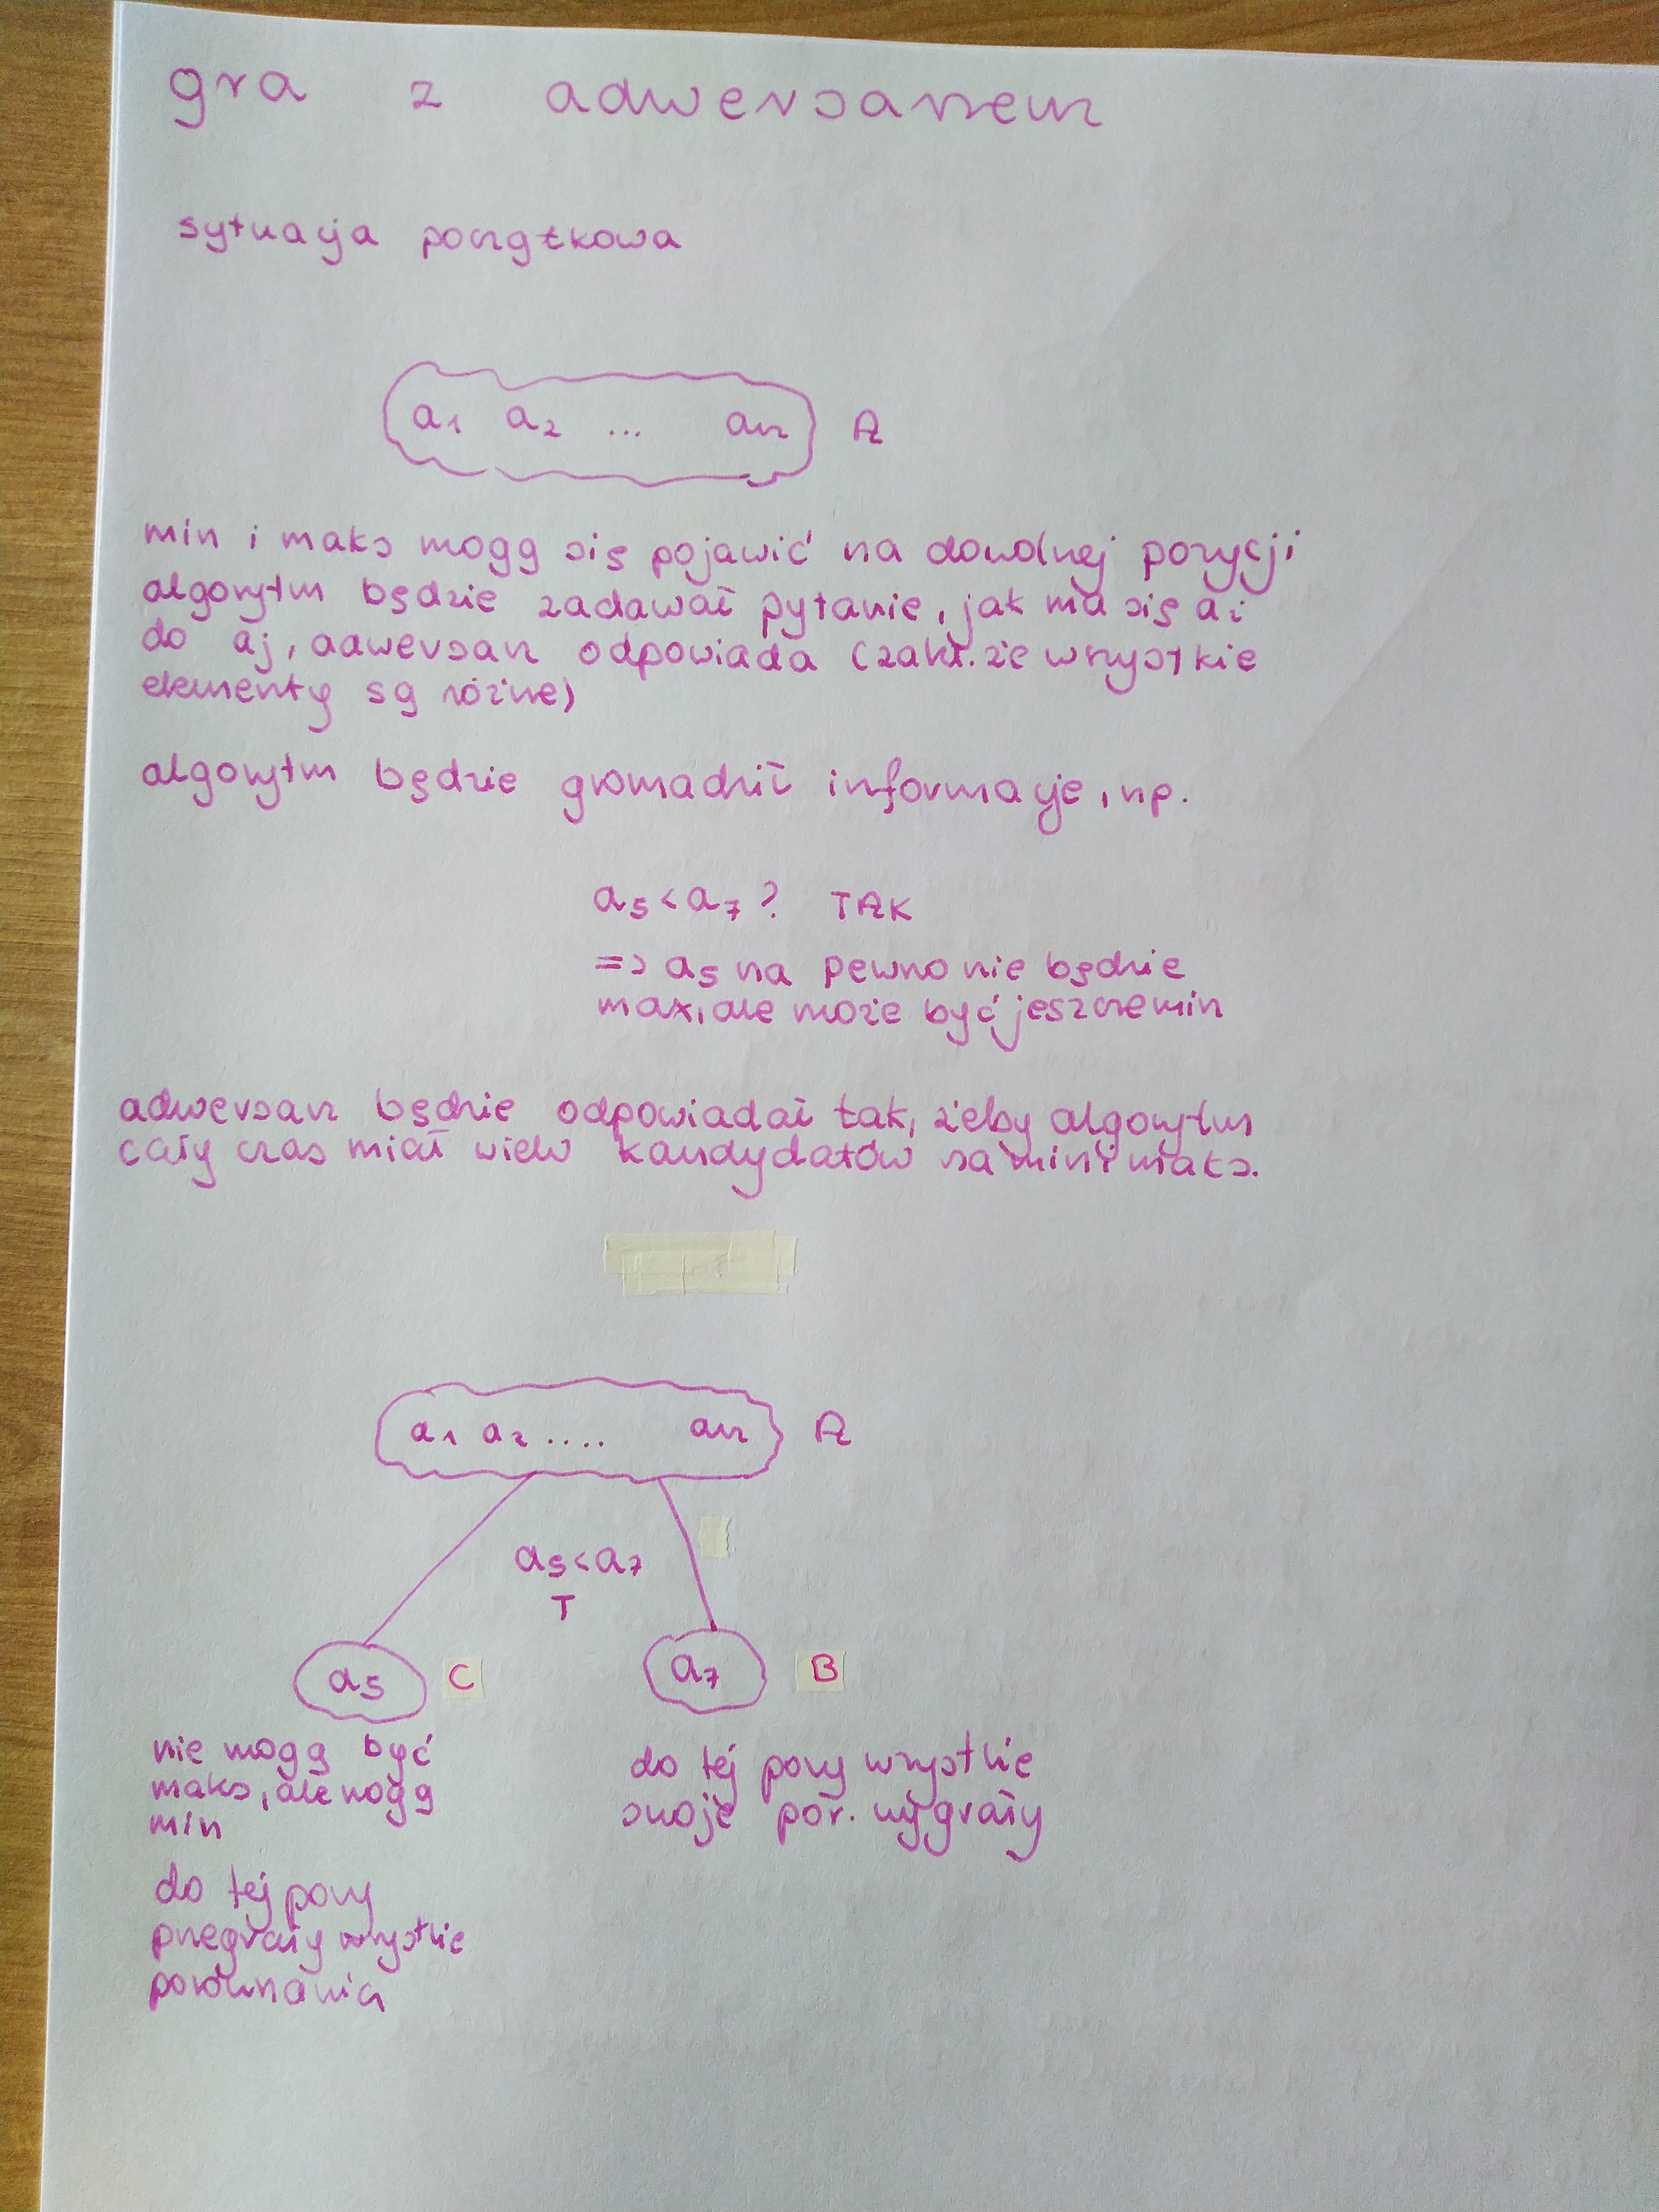 gra z adwersarzem
sytuacja początkowa
a1 a2 ... an A
min i maks mogą się pojawić na dowolnej pozycji
algorytm będzie zadawał pytanie, jak ma się ai
do aj, adwersarz odpowiada (zakł. że wszystkie
elementy są różne)
algorytm będzie gromadził informacje, np.
a5 < a7 ? TAK
=> a5 na pewno nie będzie
max, ale może być jeszcze min
adwersarz będzie odpowiadał tak, żeby algorytm
cały czas miał wielu kandydatów na min i maks.
a1 a2 .... an A
a5 < a7
T
a5 C a7 B
nie mogą być
maks, ale mogą
min
do tej pory wszystkie
swoje por. wygrały
do tej pory
przegrały wszystkie
porównania